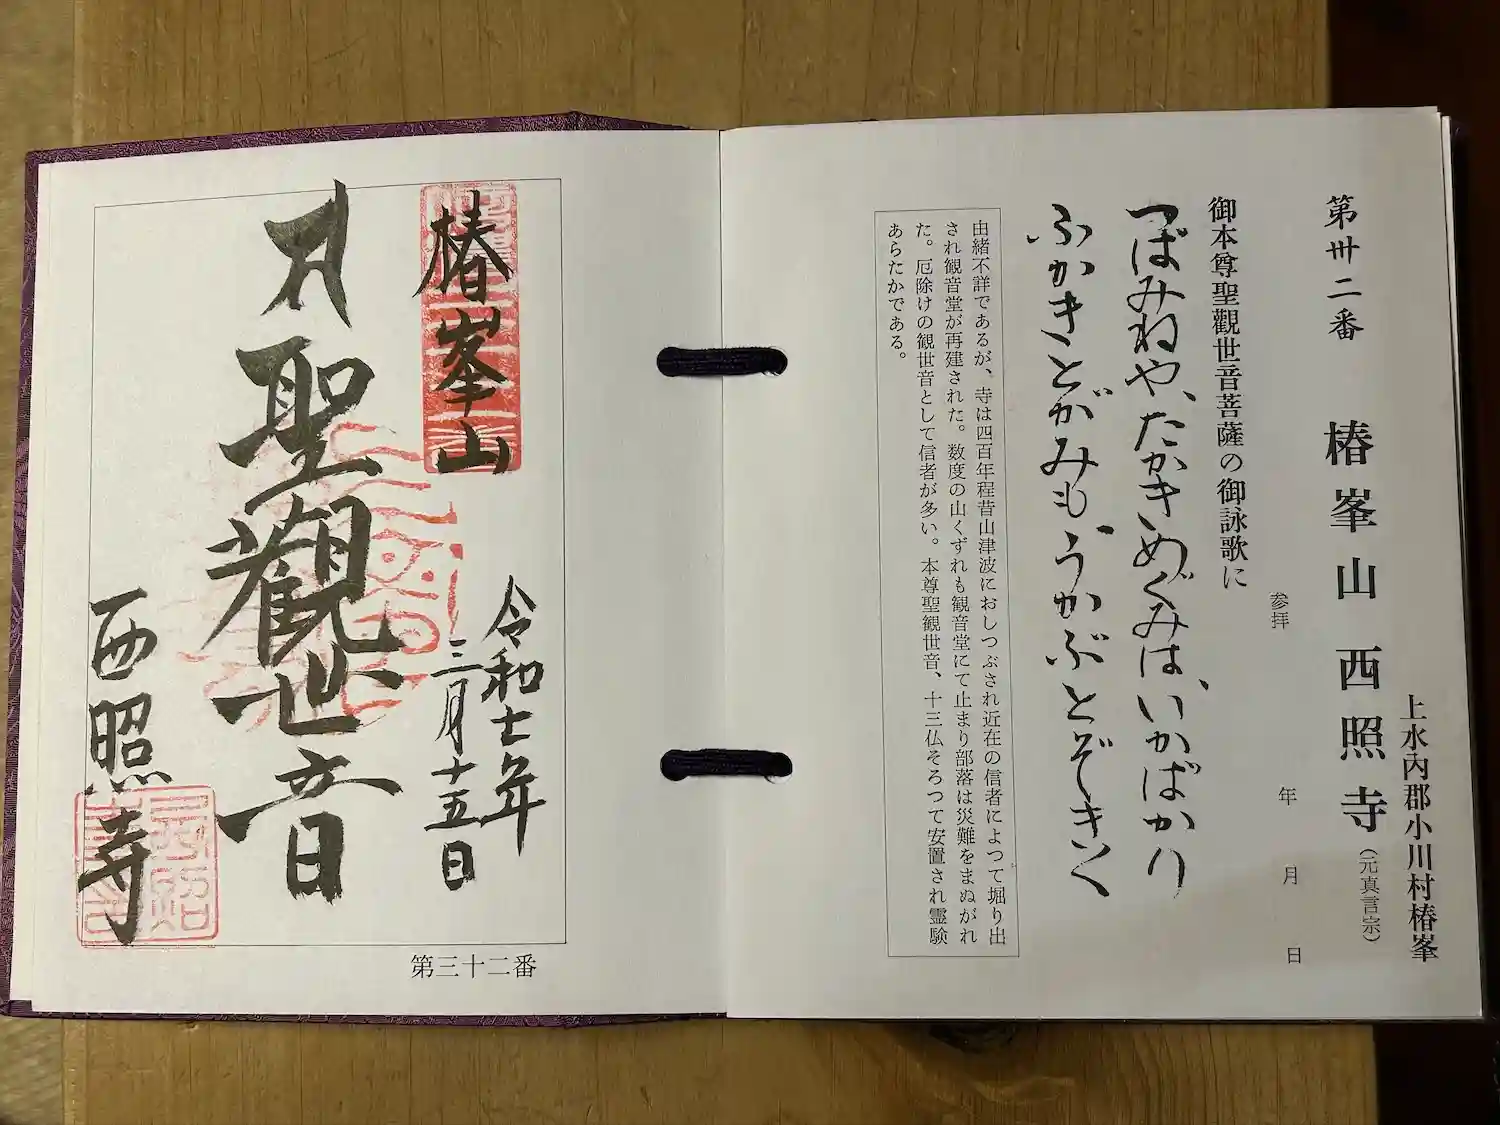 上水内郡小川村椿峯
第卅二番　椿峯山西照寺（元真言宗）
参拝　年　月　日
御本尊聖觀世音菩薩の御詠歌に
つばみねや、たかきめぐみは、いかばかり
ふかきとがみも、うかぶとぞきく
由緒不詳であるが、寺は四百年程昔山津波におしつぶされ近在の信者によって堀り出
され観音堂が再建された。数度の山くずれも観音堂にて止まり部落は災難をまぬがれ
た。厄除けの観世音として信者が多い。本尊聖観世音、十三仏そろつて安置され霊験
あらたかである。
椿峯山
令和七年
三月十五日
聖觀世音
西照寺
第三十二番